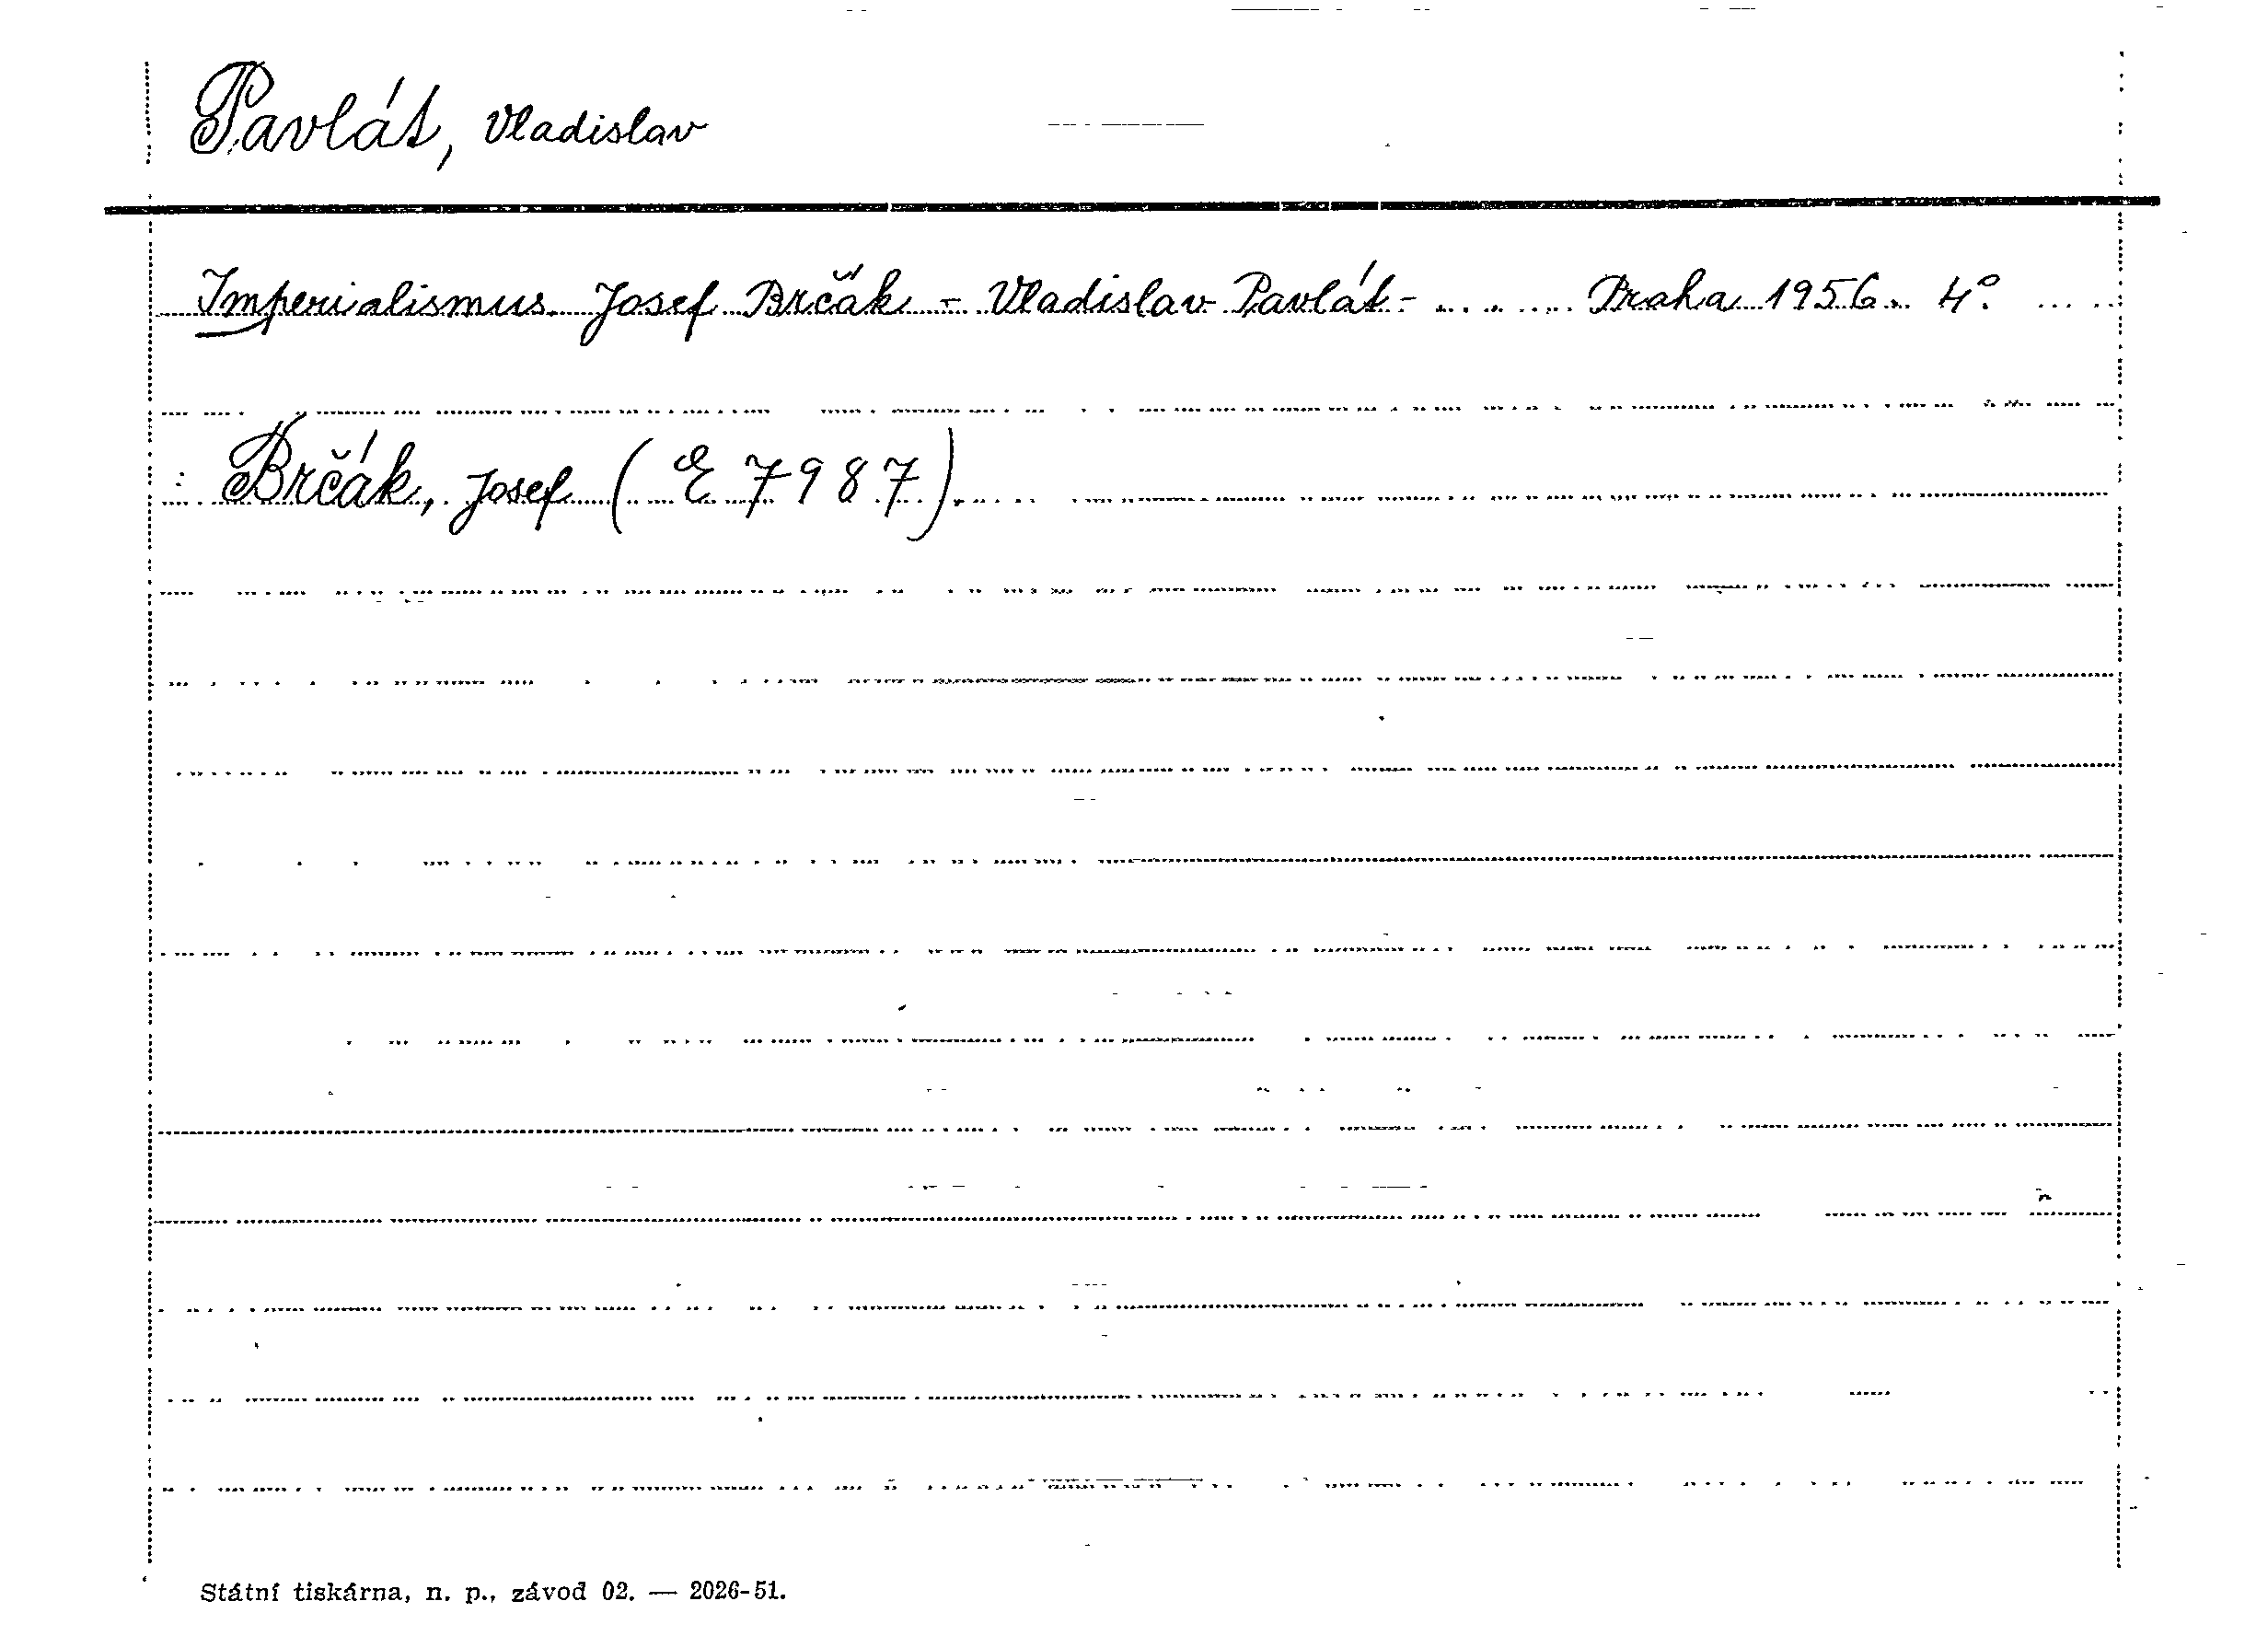 Pavlát, Vladislav
Imperialismus. Josef Brčák - Vladislav Pavlát - ........ Praha 1956. 4°.
: Brčák, Josef ( E 7987).
Státní tiskárna, n. p., závod 02. — 2026-51.